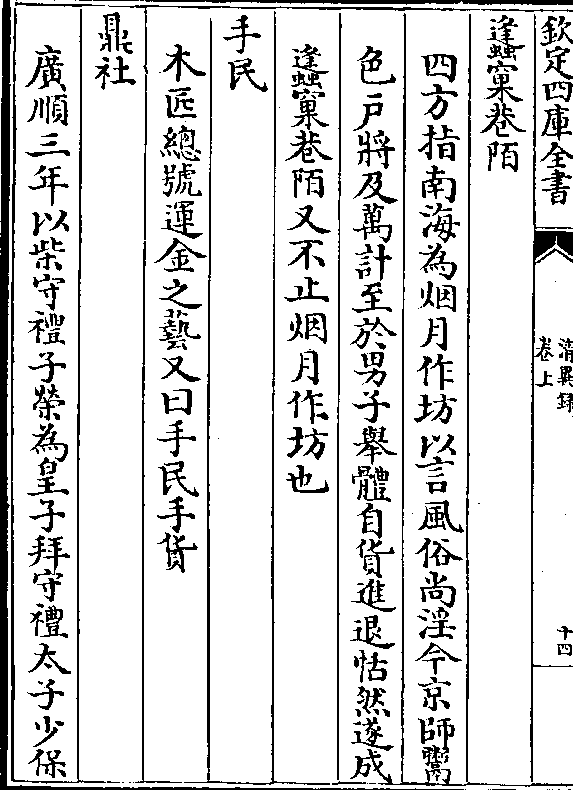 欽定四庫全書
清異録
卷上
十四
蠭窠巷陌
四方指南海為烟月作坊以言風俗尚淫今京師鬻
色戸將及萬計至於男子舉體自貨進退怙然遂成
蠭窠巷陌又不止烟月作坊也
手民
木匠總號運金之藝又曰手民手貨
鼎社
廣順三年以柴守禮子榮為皇子拜守禮太子少保